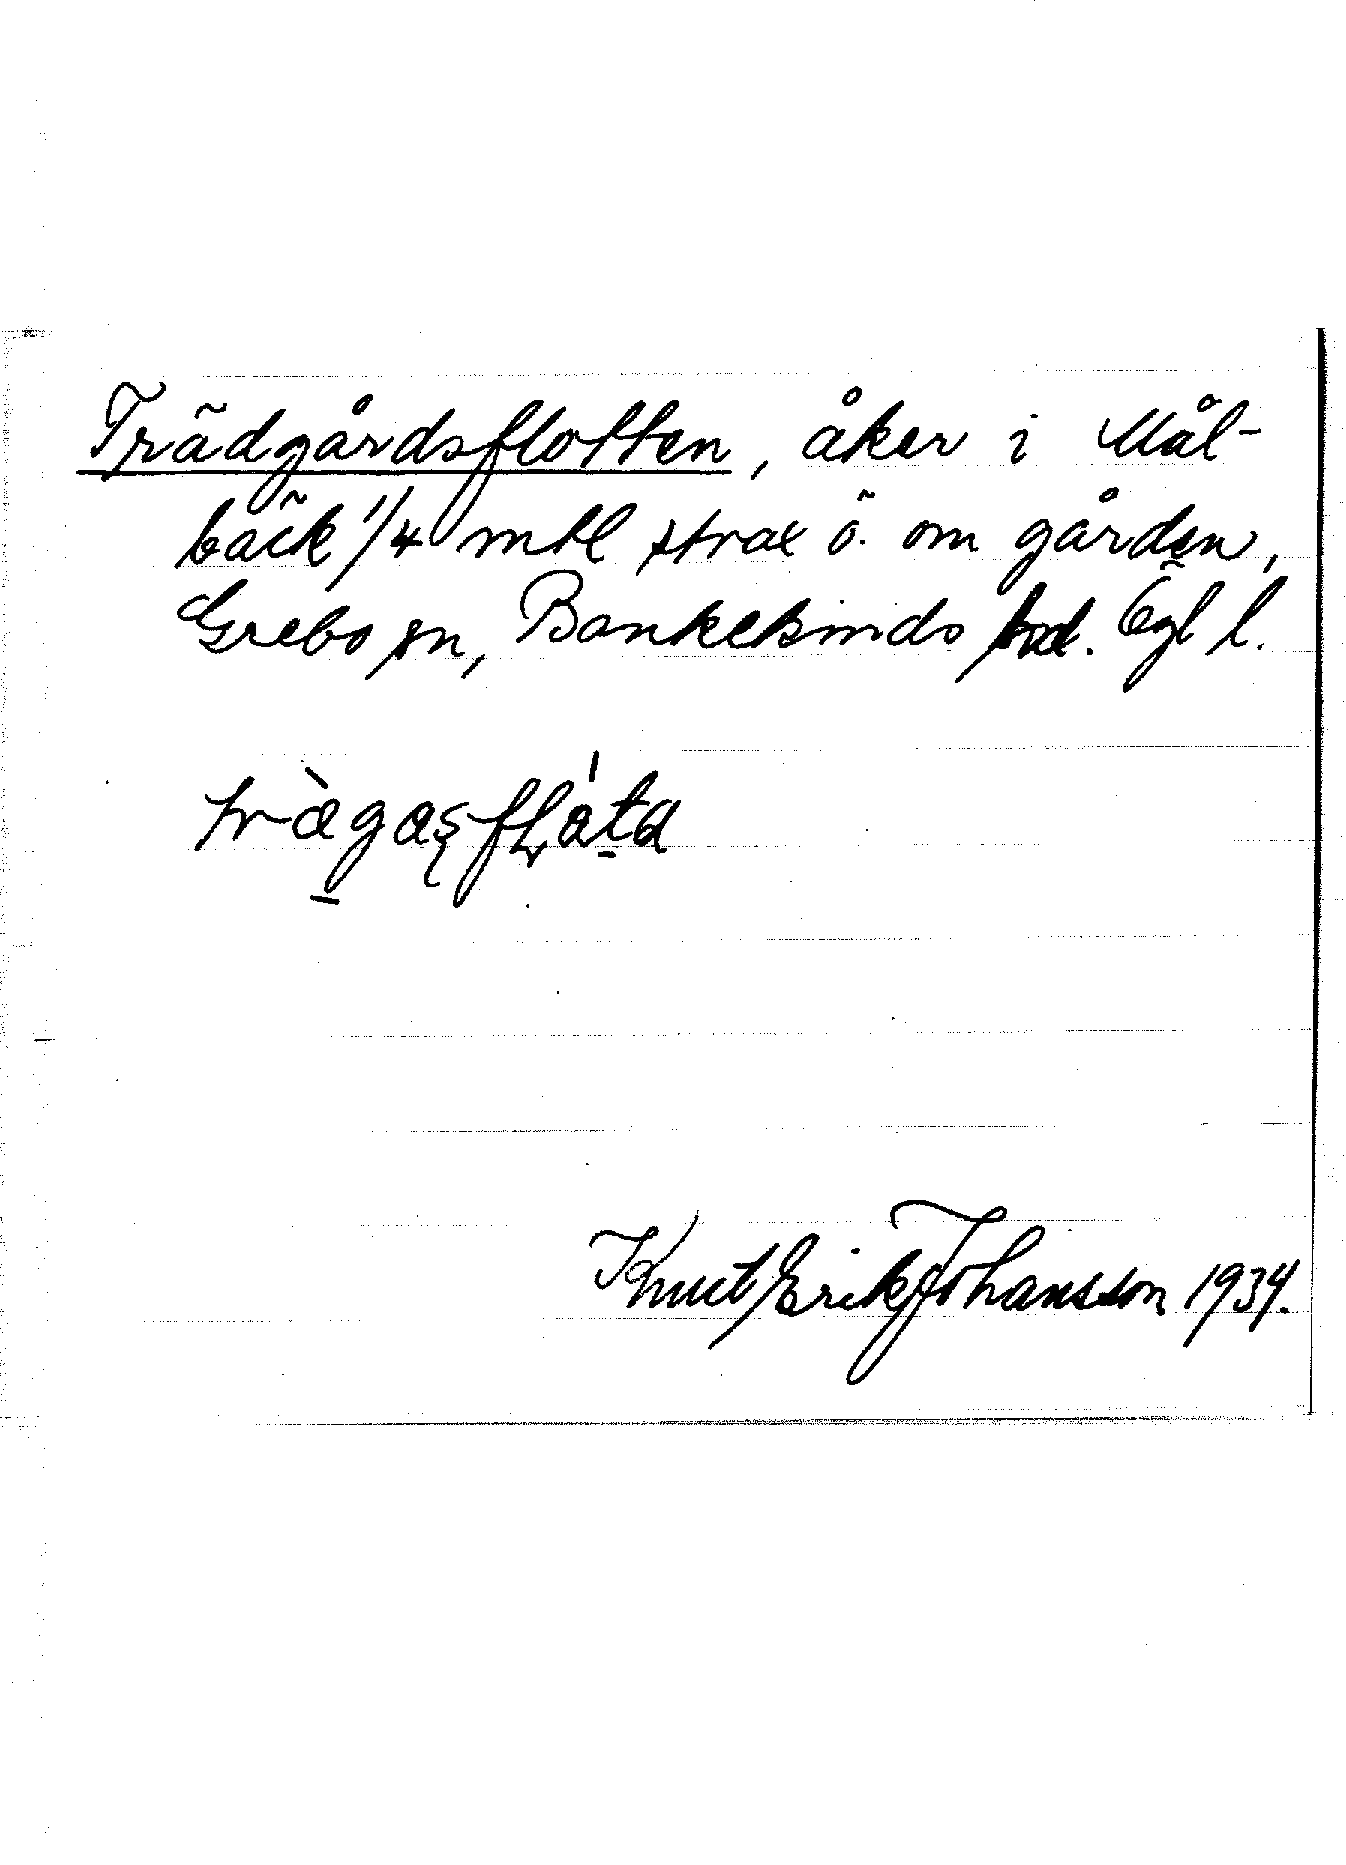 Trädgårdsflotten, åker i Mål-
bäck 1/4 mtl strax ö. om gården,
Grebo sn, Bankekinds hd. Ögl l.
trægasflåta
Knut Erik Johansson 1934.